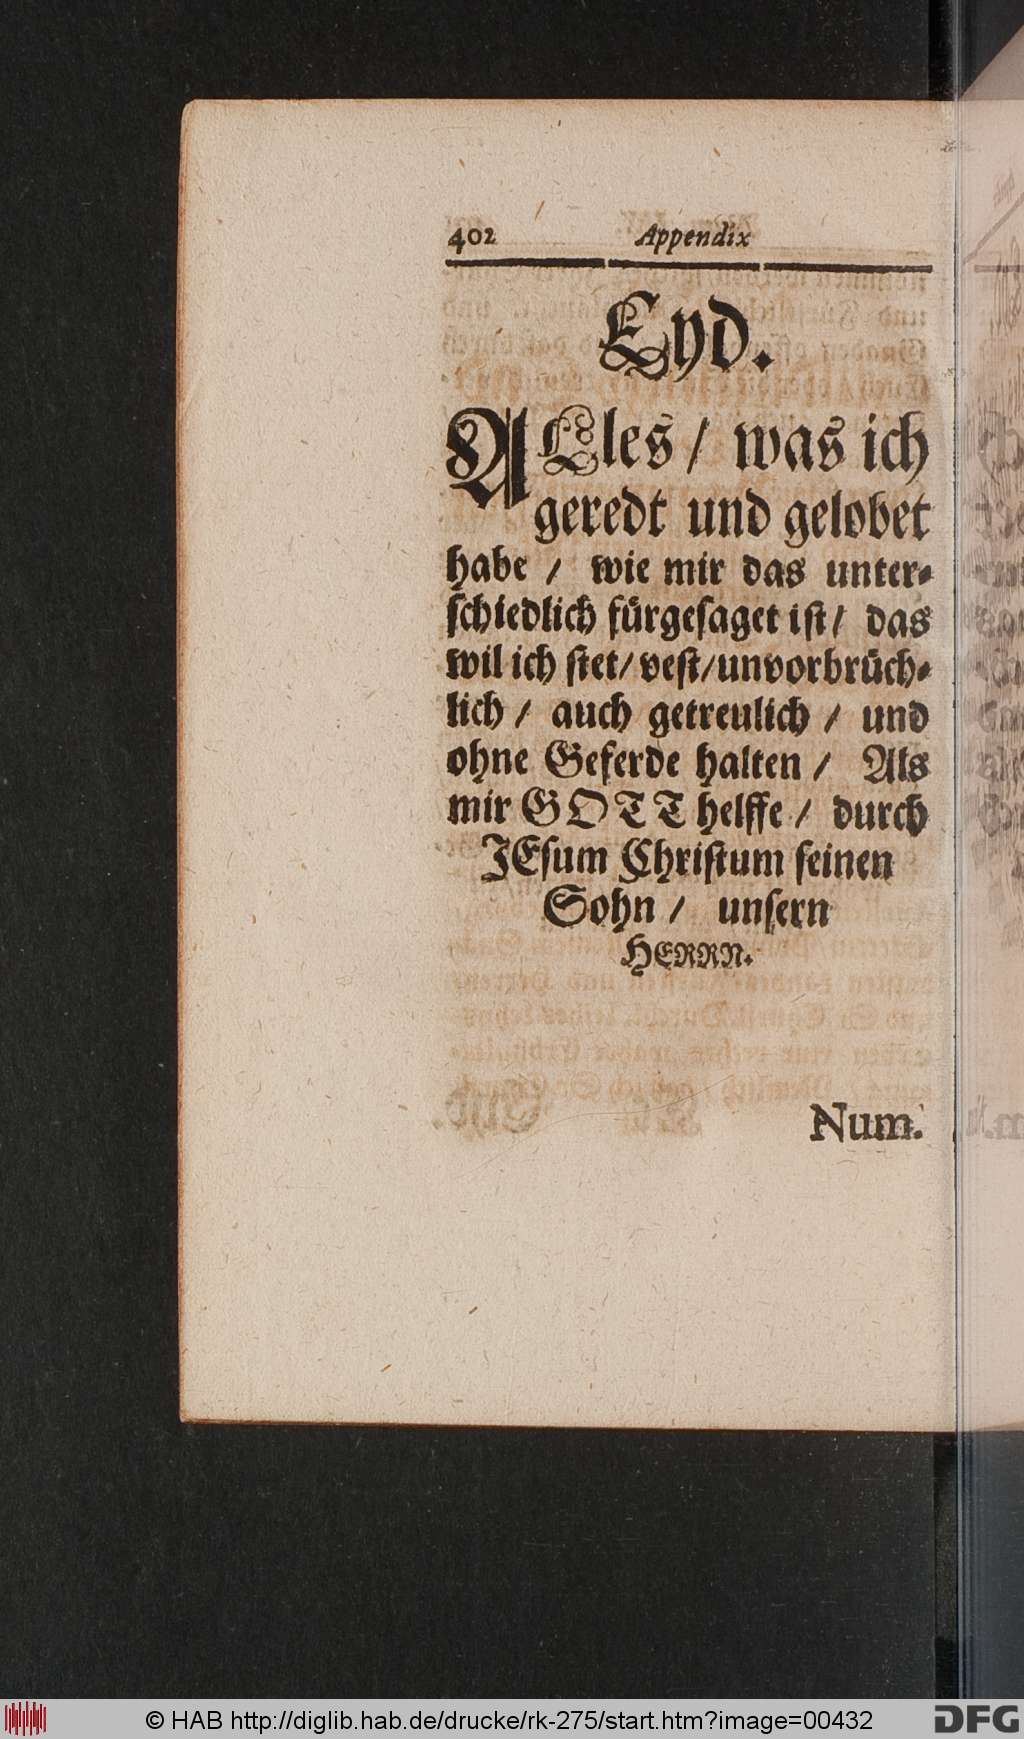 402 Appendix
Eyd.
ALles / was ich
geredt und gelobet
habe / wie mir das unter-
schiedlich fürgesaget ist / das
wil ich stet / vest / unvorbrüch-
lich / auch getreulich / und
ohne Geferde halten / Als
mir GOTT helffe / durch
JEsum Christum seinen
Sohn / unsern
HERRN.
Num.
© HAB http://diglib.hab.de/drucke/rk-275/start.htm?image=00432
DFG